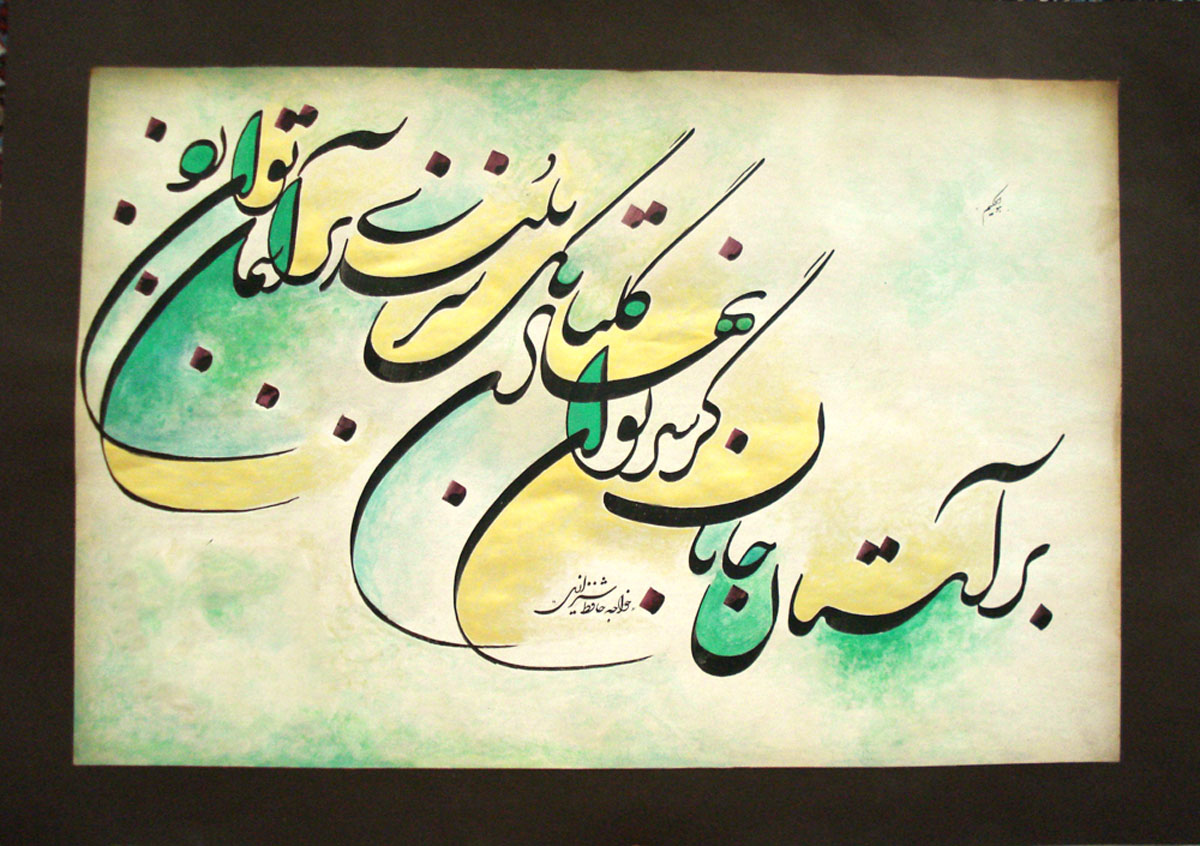 هوالحکیم
بر آستان جانان گر سر توان نهادن
گلبانگ سربلندی بر آسمان توان زد
خواجه حافظ شیرازی